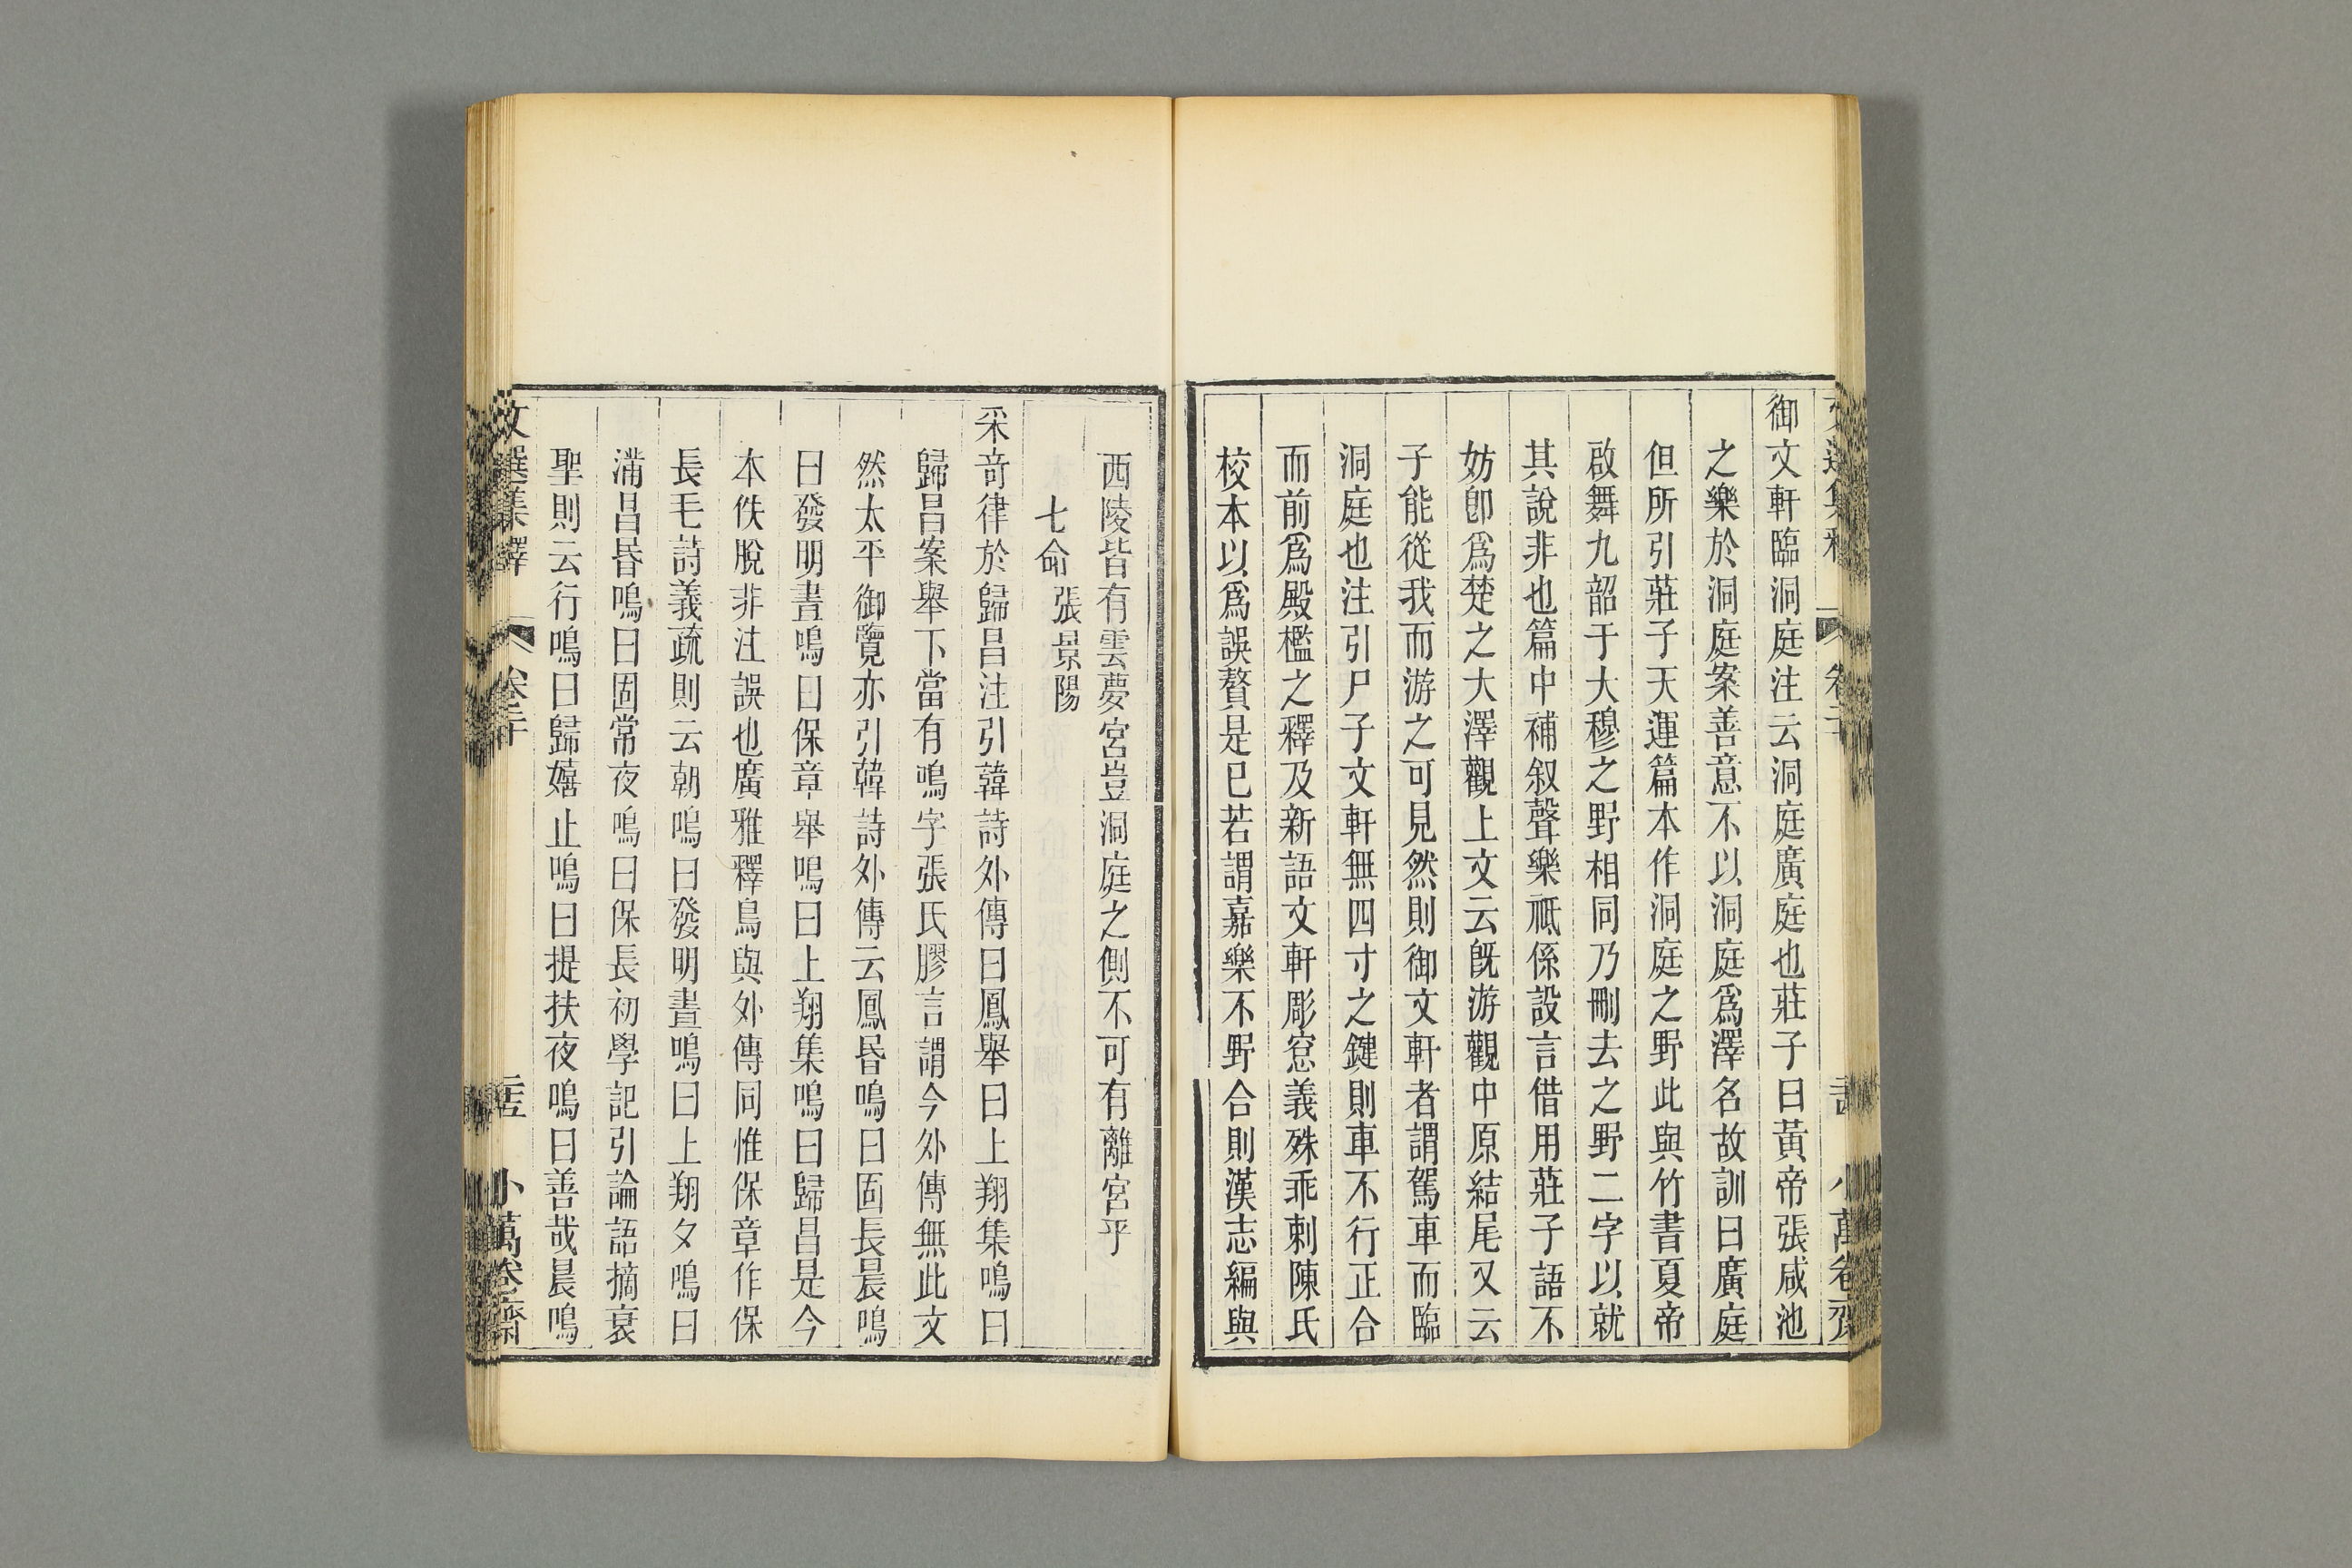 御文軒臨洞庭注云洞庭廣庭也莊子曰黃帝張咸池
之樂於洞庭案善意不以洞庭爲澤名故訓曰廣庭
但所引莊子天運篇本作洞庭之野此與竹書夏帝
啟舞九韶于大穆之野相同乃刪去之野二字以就
其說非也篇中補叙聲樂祗係設言借用莊子語不
妨卽爲楚之大澤觀上文云旣游觀中原結尾又云
子能從我而游之可見然則御文軒者謂駕車而臨
洞庭也注引尸子文軒無四寸之鍵則車不行正合
而前爲殿檻之釋及新語文軒彫窓義殊乖剌陳氏
校本以爲誤贅是已若謂嘉樂不野合則漢志編與
西陵皆有雲夢宮豈洞庭之側不可有離宮乎
七命 張景陽
采奇律於歸昌注引韓詩外傳曰鳳舉曰上翔集鳴曰
歸昌案舉下當有鳴字張氏膠言謂今外傳無此文
然太平御覽亦引韓詩外傳云鳳昏鳴曰固長晨鳴
曰發明晝鳴曰保章舉鳴曰上翔集鳴曰歸昌是今
本佚脫非注誤也廣雅釋鳥與外傳同惟保章作保
長毛詩義疏則云朝鳴曰發明晝鳴曰上翔夕鳴曰
滿昌昏鳴曰固常夜鳴曰保長初學記引論語摘衰
聖則云行鳴曰歸嬉止鳴曰提扶夜鳴曰善哉晨鳴
文選集釋 卷二十 二五 小萬卷齋